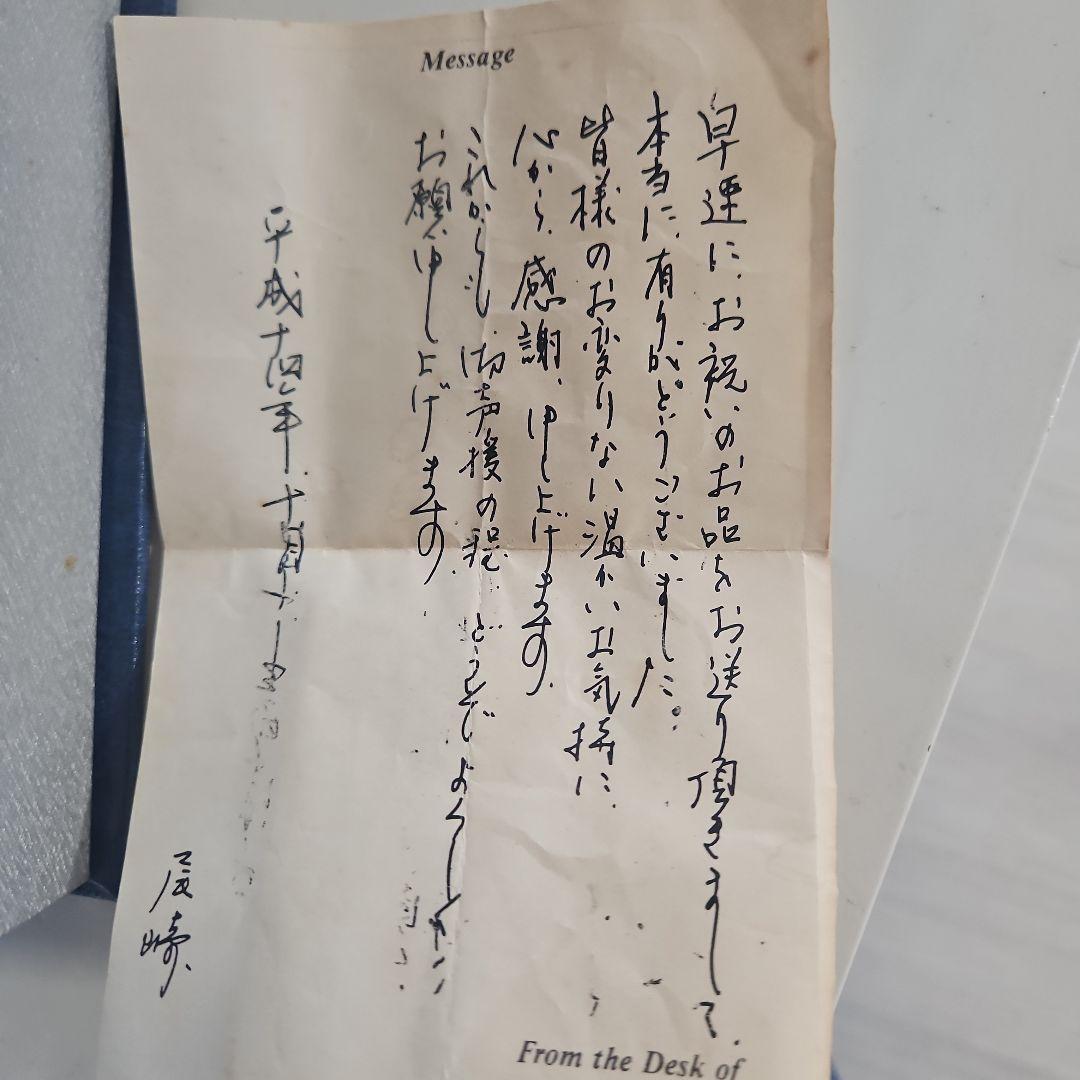 Message
早速に、お祝いのお品をお送り頂きまして、
本当に、有りがとうございました。
皆様のお変りない温かいお気持に、
心から、感謝、申し上げます。
これからも、御声援の程、どうぞよろしく
お願い申し上げます。
平成十四年、十月
尾崎、
From the Desk of